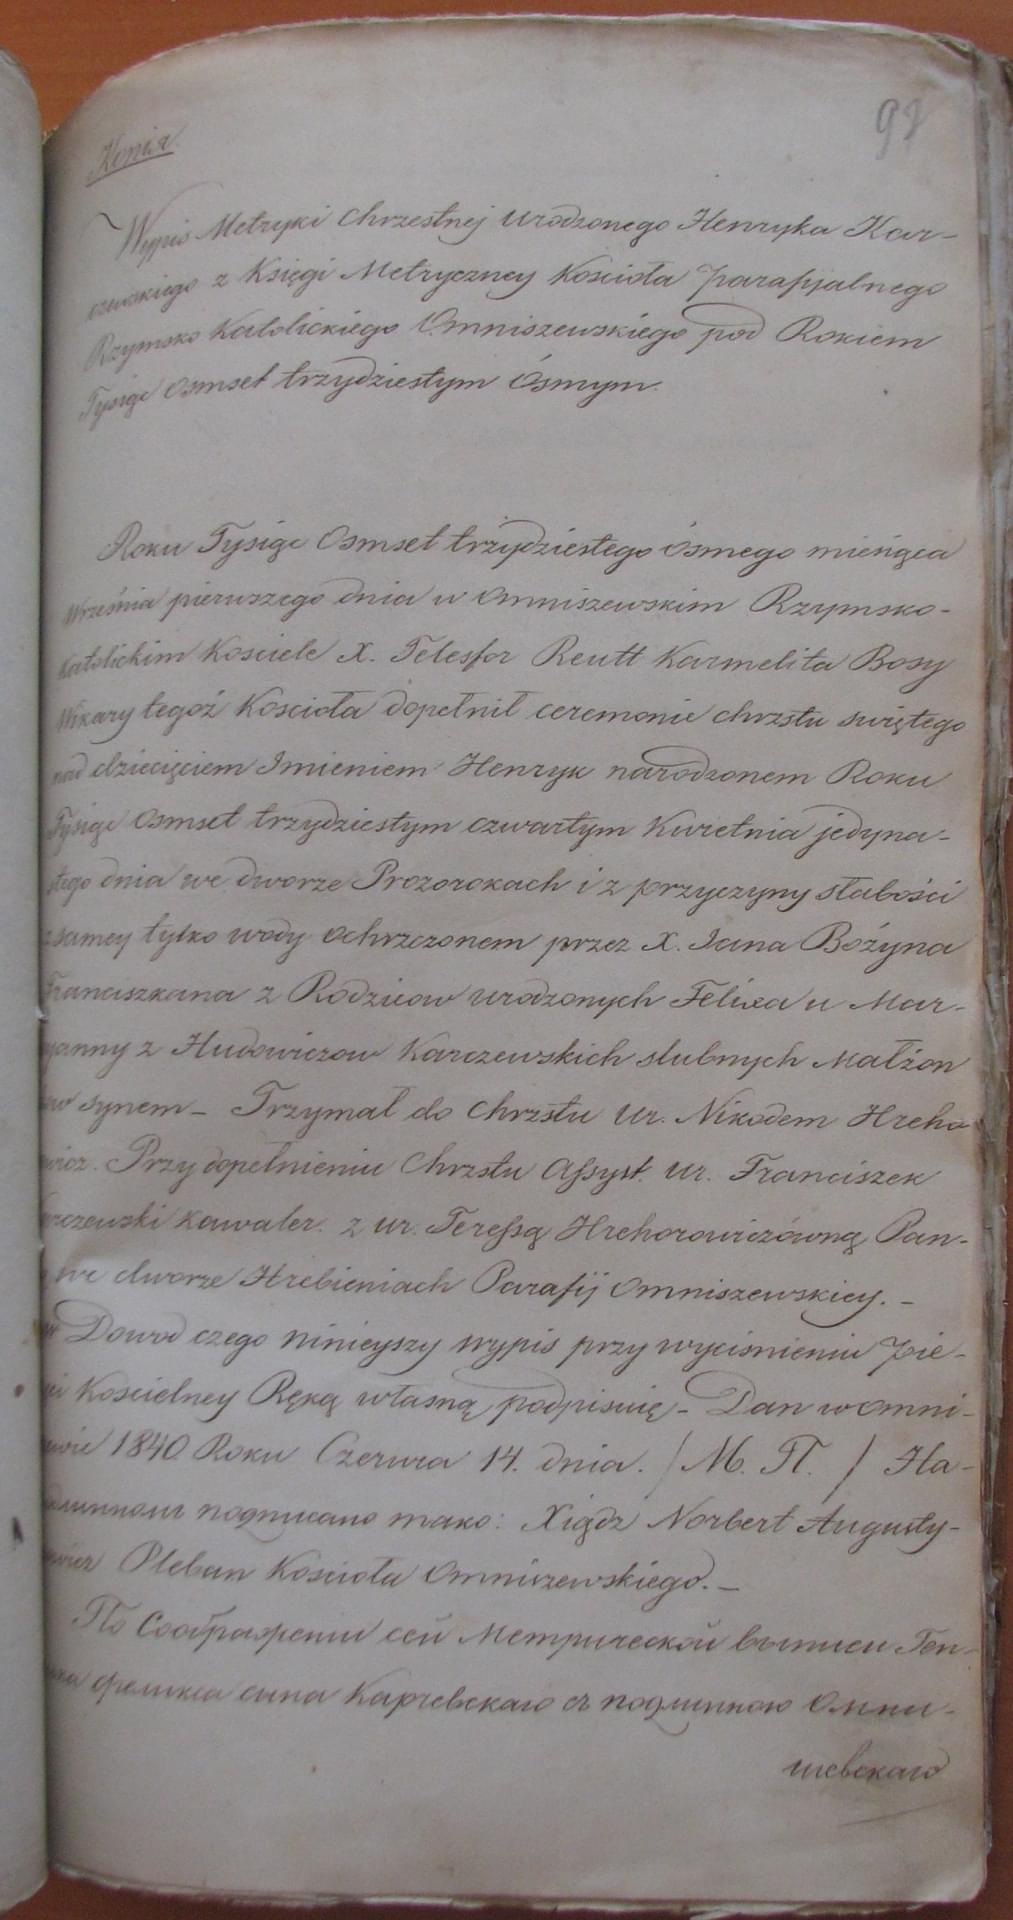 97
Копія
Wypis Metryki Chrzestnej Urodzonego Henryka Kar-
czewskiego z Księgi Metryczney Kościoła parafjalnego
Rzymsko Katolickiego Omniszewskiego pod Rokiem
Tysiąc Osmset trzydziestym Ósmym.
Roku Tysiąc Osmset trzydziestego ósmego miesiąca
Września pierwszego dnia w Omniszewskim Rzymsko-
Katolickim Kosciele X. Telesfor Reutt Karmelita Bosy
Wikary tegoż Kościoła dopełnił ceremonie chrzstu swiętego
nad dziecięciem Imieniem Henryk narodzonem Roku
Tysiąc Osmset trzydziestym czwartym Kwietnia jedyna-
stego dnia we dworze Prozorokach i z przyczyny słabości
z samey tylko wody ochrzczonem przez X. Jana Bożyna
Franciszkana z Rodzicow urodzonych Felixa u Mar-
yanny z Hudowiczow Karczewskich slubnych Małżon
kow synem - Trzymał do Chrzstu Ur. Nikodem Hreho-
wicz. Przy dopełnieniu Chrzstu Assyst. Ur. Franciszek
Karczewski Kawaler z Ur. Teressą Hrehorowiczówną Pan-
we dworze Hrebieniach Parafij Omniszewskiey. -
w Dowod czego ninieyszy wypis przy wyciśnieniu pie-
Koscielney Ręką własną podpisuię - Dan w Omni-
szewie 1840 Roku Czerwca 14. dnia. / М. П. / На-
подлинномъ подписано тако: Xiądz Norbert Augusty-
nowicz Pleban Kościoła Omniszewskiego. -
По Соображении сей Метрической выписи Ген-
рика Феликса сына Карчевскаго съ подлинною Омни-
шевскаго